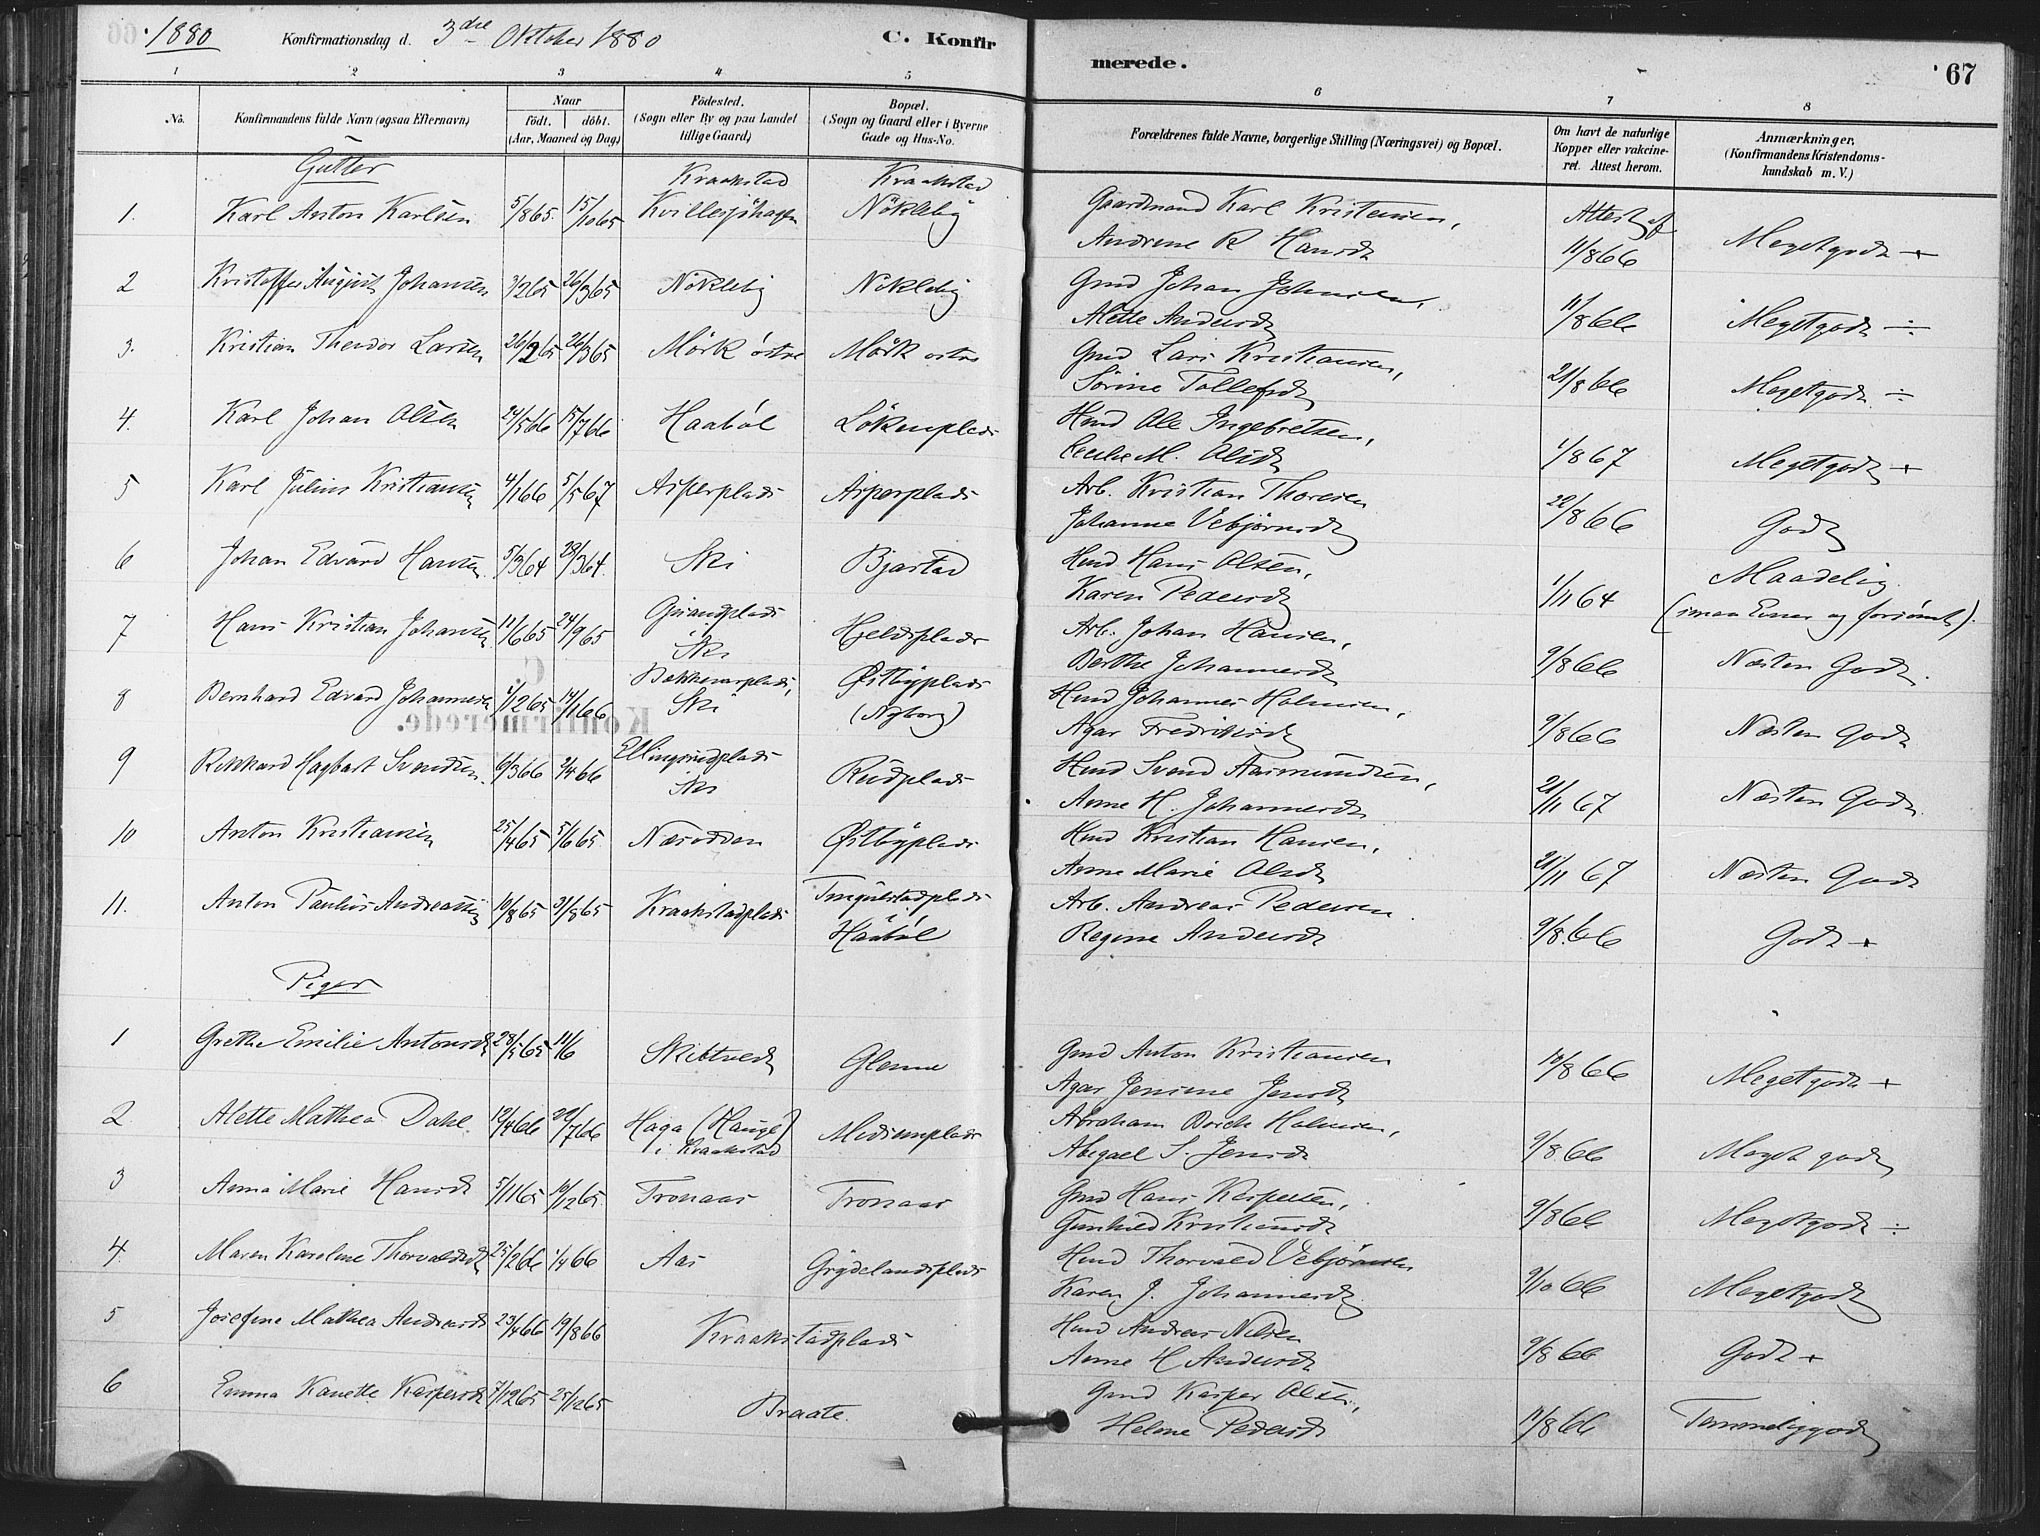 1880 Konfirmationsdag d. 3die Oktober 1880 C. Konfirmerede. 67
1 2 3 4 5 6 7 8
No. Konfirmandens fulde Navn (ogsaa Efternavn) Naar födt. döbt. (Aar, Maaned og Dag) Födested. (Sogn eller By og paa Landet tillige Gaard) Bopæl. (Sogn og Gaard eller i Byerne Gade og Hus-No. Forældrenes fulde Navne, borgerlige Stilling (Næringsvei) og Bopæl. Om havt de naturlige Kopper eller vakcineret. Attest herom. Anmærkninger. (Konfirmandens Kristendomskundskab m. V.)
Gutter Kraakstad Kraakstad
1. Karl Anton Karlsen 5/8 65 15/10 65 Nökleby Gaardmand Karl Kristensen, Attest af
Andrine R Hansd 11/8 66 Megetgodt +
2 Kristoffer August Johansen 3/2 65 26/3 65 Nökleby Nökleby Gmd Johan Johnsen,
Alette Andersd 11/8 66 Megetgodt ÷
3. Kristian Theodor Larsen 26/2 65 26/3 65 Mörk östre Mörk östre Gmd Lars Kristiansen,
Sörine Tollefsd 21/8 66 Megetgodt ÷
4. Karl Johan Olsen 24/5 66 15/7 66 Haaböl Lökenplads Hmd Ole Ingebretsen,
Cecilie M. Olsd 1/8 67 Megetgodt +
5 Karl Julius Kristiansen 4/1 66 5/5 67 Asperplads Asperplads Arb. Kristian Thoresen
Johanne Vebjörnsd 22/8 66 Godt
6 Johan Edvard Hansen 5/3 64 28/3 64 Ski Bjastad Hmd Hans Olsen,
Karen Pedersd 1/11 64 Maadelig
(smaa Evner og forsömt).
7 Hans Kristian Johansen 11/6 65 24/9 65 Ski Hjeldsplads Arb. Johan Hansen,
Berthe Johannesd 9/8 66 Næsten Godt.
8 Bernhard Edvard Johannesen 1/12 65 14/1 66 Ski Østbyplads
(Nyborg) Hmd Johannes Holmsen,
Agar Fredriksd 9/8 66 Næsten Godt
9 Rikkard Hagbart Svendsen 6/3 66 2/4 66 Ellingsrudplads
Ski Rudplads Hmd Svend Aasmundsen,
Anne H. Johannesd 21/11 67 Næsten Godt.
10 Anton Kristiansen 25/4 65 5/6 65 Næsodden Østbyplads Hmd Kristian Hansen,
Anne Marie Olsd 21/11 67 Næsten Godt
11. Anton Paulus Andreassen 10/8 65 Kraakstadplads
Haaböl Arb. Andreas Pedersen
Regine Andersd 9/8 66 Godt +
Piger
1 Grethe Emilie Antonsd 28/5 65 11/6 Skibtvedt Glenne Gmd Anton Kristiansen
Agar Jensine Jensd 10/8 66 Megetgodt +
2 Alette Mathea Dahl 12/4 66 22/7 66 Haga (Hauge)
i Kraakstad Abraham Holmsen,
Abigael S. Jensd 9/8 66 Meget godt
3 Anna Marie Hansd 5/11 65 10/12 65 Tronaas Tronaas Gmd Hans Kaspersen,
Gunhild Kristiansd 9/8 66 Megetgodt ÷
4. Maren Karoline Thorvaldsd 25/2 66 1/4 66 Aas Grydelandsplads Hmd Thorvald Vebjörnsen
Karen J. Johannesd 9/10 66 Megetgodt
5 Josefine Mathea Andreasd 23/4 66 19/8 66 Kraakstadplads Hmd Andreas Nilsen
Anne H Andersd 9/8 66 Godt +
6 Emma Kasparsd 7/12 65 Braate. Gmd Kasper Olsen,
Helene Pedersd 11/8 66 Temmeliggodt